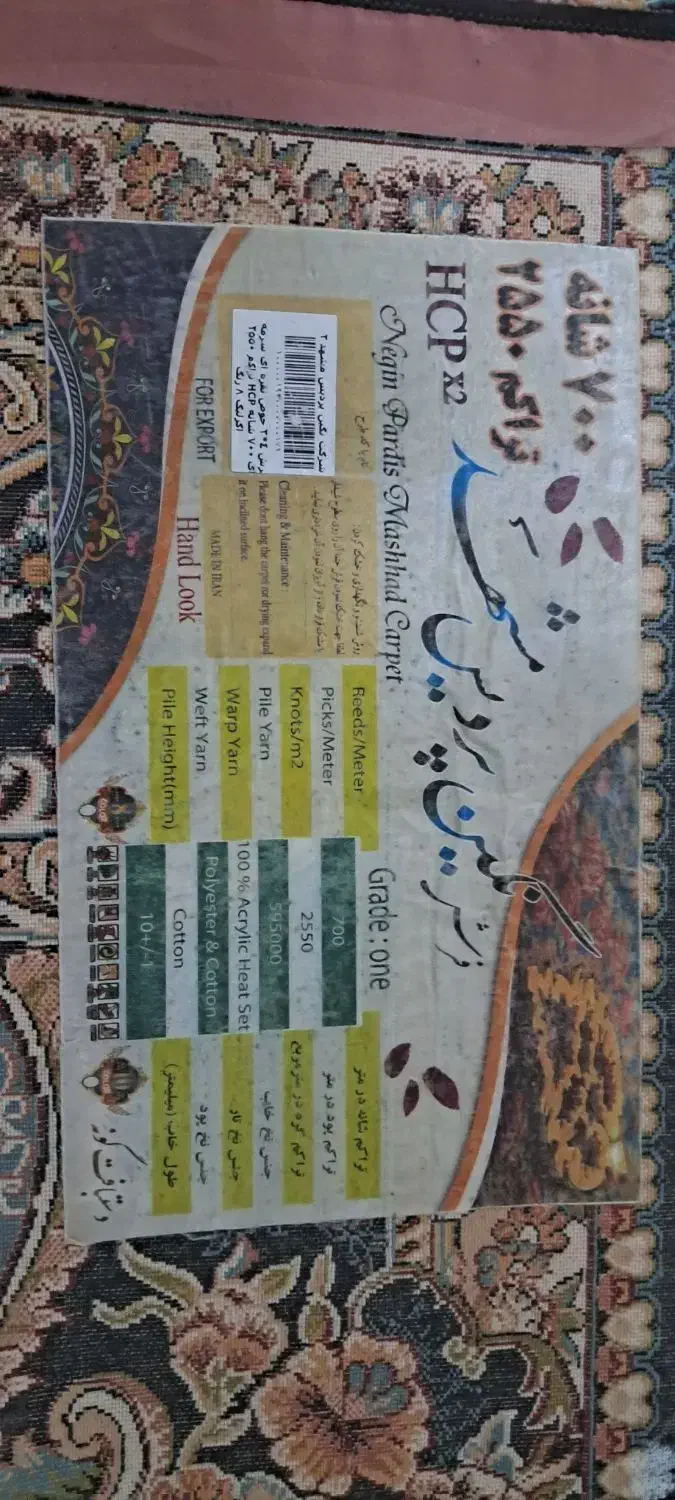 ۷۰۰ شانه
تراکم ۲۵۵۰
HCP x2
فرش نگین پردیس مشهد
Negin Pardis Mashhad Carpet
Grade : one
Reeds/Meter 700 تراکم شانه در متر
Picks/Meter 2550 تراکم پود در متر
Knots/m2 595000 تراکم گره در متر مربع
Pile Yarn 100 % Acrylic Heat Set جنس نخ خاب
Warp Yarn Polyester & Cotton جنس نخ تار
Weft Yarn Cotton جنس نخ پود
Pile Height(mm) 10+/-1 طول خاب (میلیمتر)
شرکت نگین پردیس مشهد ۲
فرش ۴*۳ حوض نقره ای سرمه
ای ۷۰۰ شانه HCP تراکم ۲۵۵۰
اکرلیک ۸ رنگ
Cleaning & Maintenance
Please dont hang the carpet nor drying expand
it on inclined surface.
MADE IN IRAN
FOR EXPORT
Hand Look
دستبافت گونه